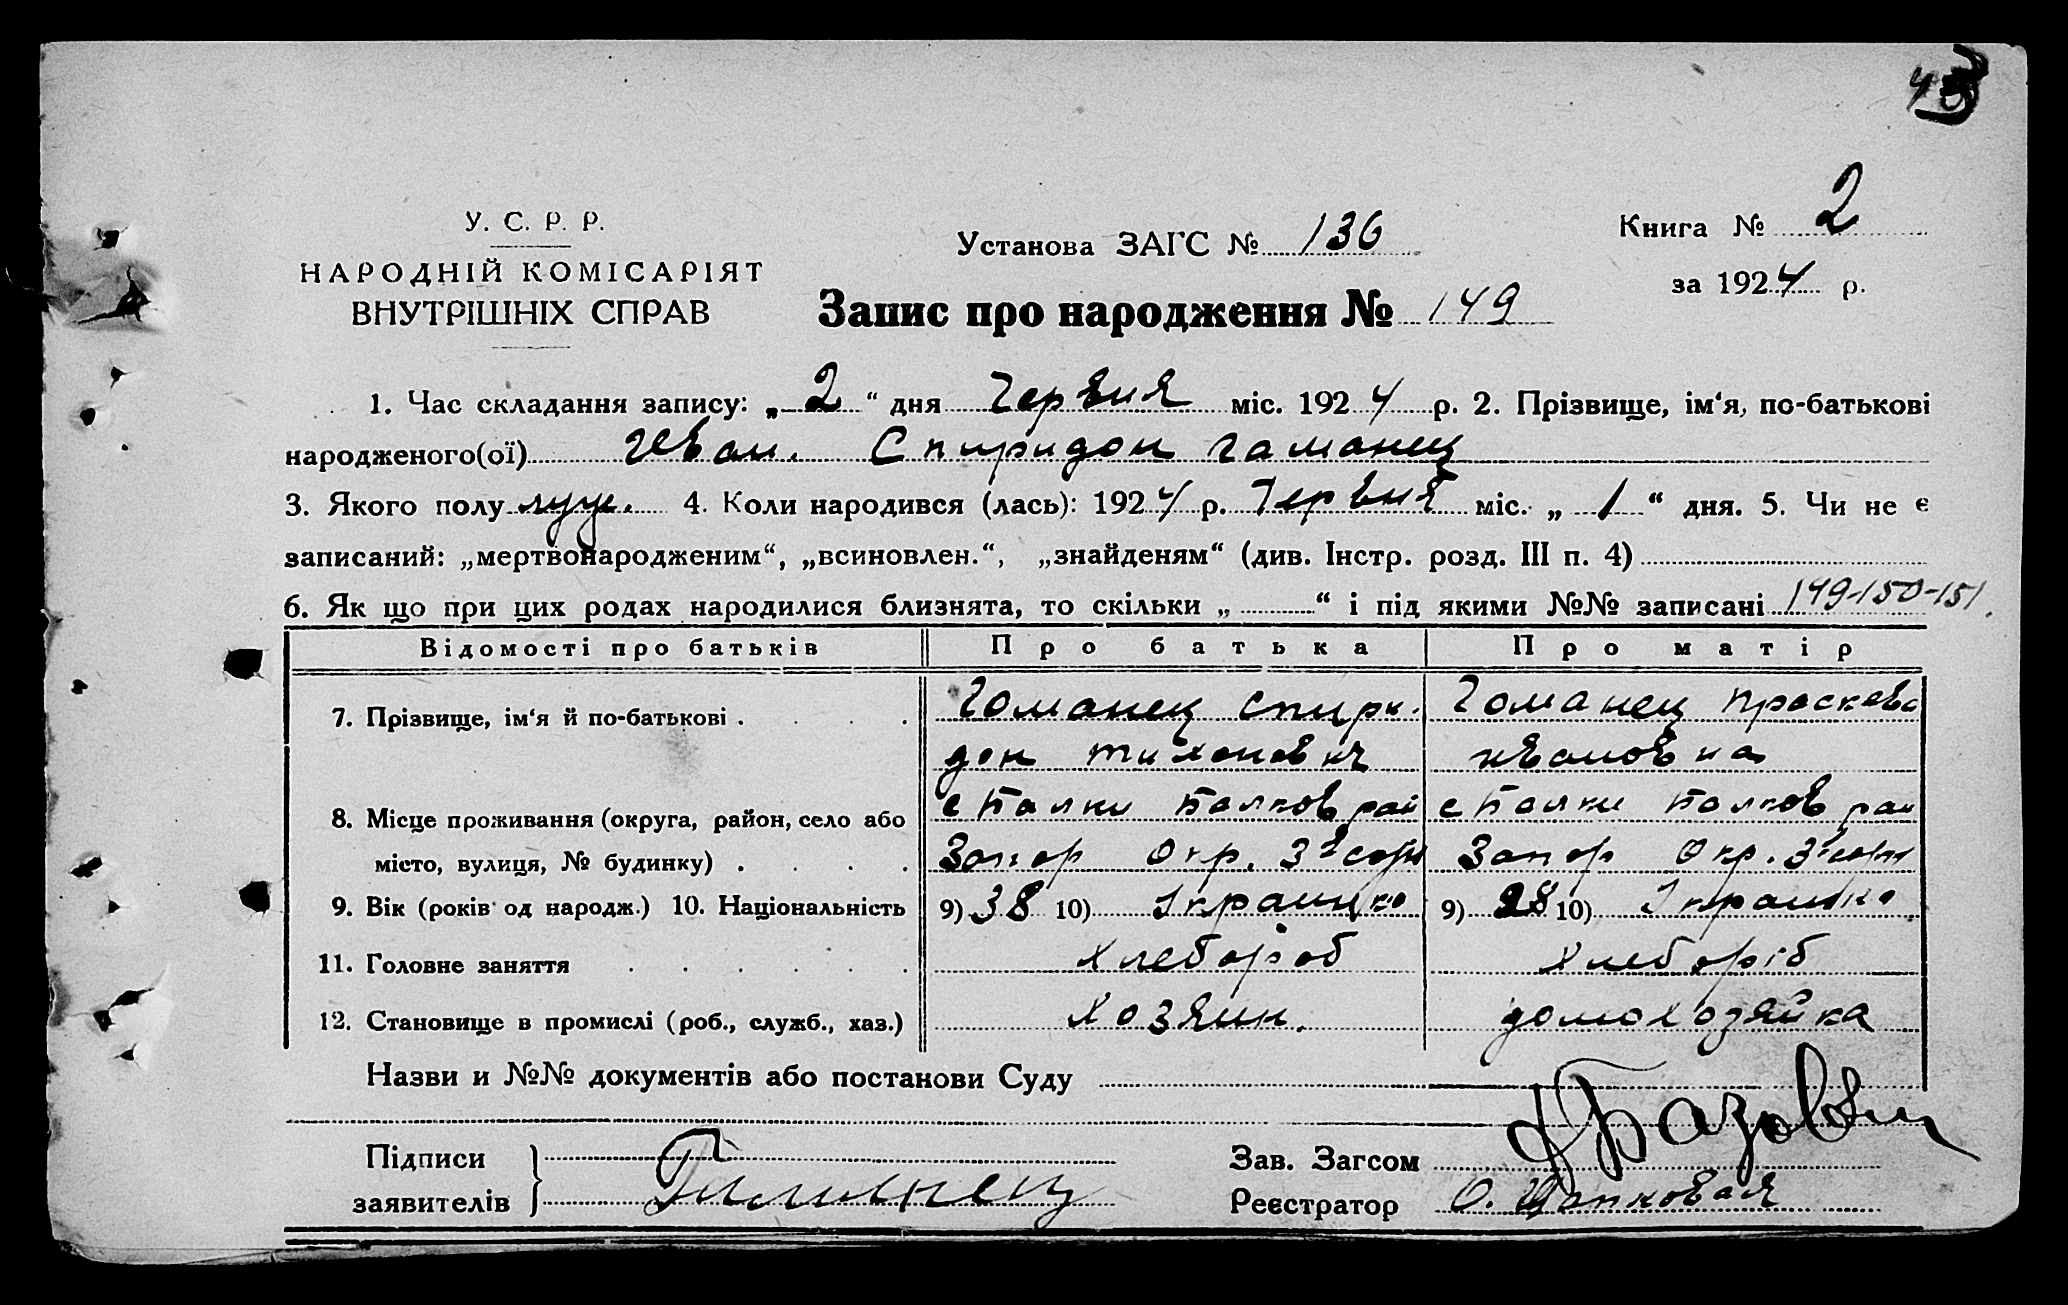 43
У. С. Р. Р.
НАРОДНІЙ КОМІСАРІЯТ
ВНУТРІШНІХ СПРАВ
Установа ЗАГС № 136
Книга № 2
за 1924 р.
Запис про народження № 149
1. Час складання запису: „ 2 “ дня Червня міс. 1924 р. 2. Прізвище, ім‘я, по-батькові
народженого(ої) Иван. Спиридон Гаманец
3. Якого полу муж. 4. Коли народився (лась): 1924 р. Червня міс. „ 1 “ дня. 5. Чи не є
записаний: „мертвонародженим“, „всиновлен.“, „знайденям“ (див. Інстр. розд. III п. 4)
6. Як що при цих родах народилися близнята, то скільки „ “ і під якими №№ записані 149-150-151.
Відомості про батьків Про батька Про матір
7. Прізвище, ім‘я й по-батькові . Гоманец Спири- Гоманец Праскева
дон Тихонович Ивановна
8. Місце проживання (округа, район, село або с Балки Балков рай с Балки Балков раи
місто, вулиця, № будинку) . Запор Окр. Запор Окр.
9. Вік (років од народж.) 10. Національність 9) 38 10) 9) 28 10)
11. Головне заняття хлебороб хлеборіб
12. Становище в промислі (роб., служб., хаз.) хозяин. домохозяйка
Назви и №№ документів або постанови Суду
Підписи
заявителів Гаманец
Зав. Загсом
Реєстратор О.